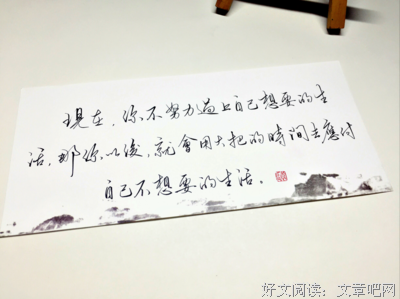 現在，你不努力過上自己想要的生
活，那你以後，就會用大把的時間去應付
自己不想要的生活。
好文阅读：文章吧网